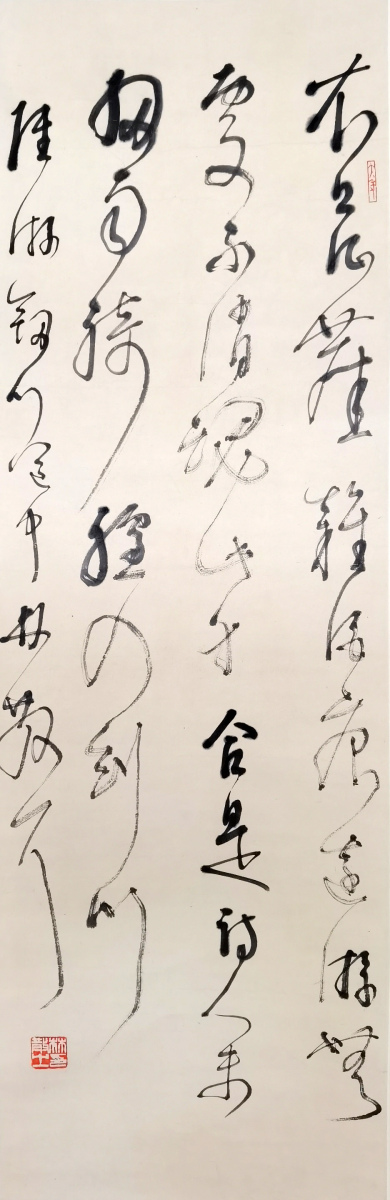 衣上征塵雜酒痕遠游無
處不消魂此身合是詩人未
細雨騎驢入劍門
陸游劍門道中 林散耳